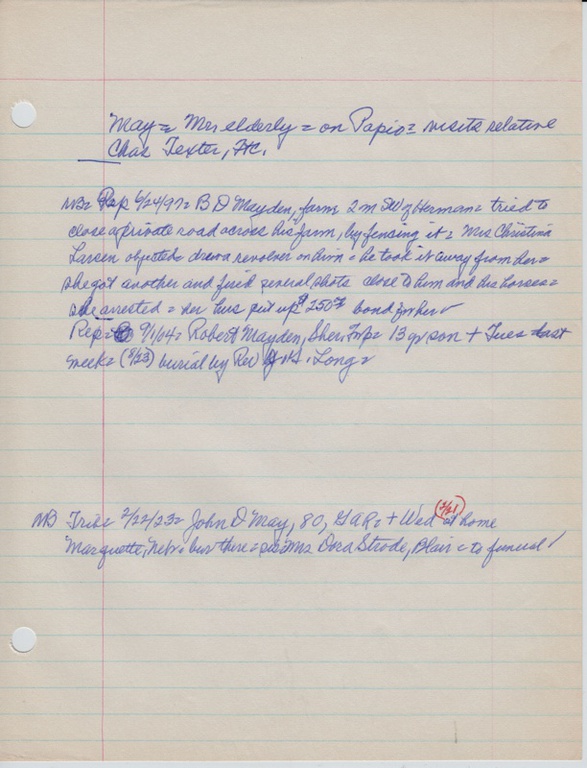 May = Mrs elderly = on Papio = visits relative
Chas Texter, FtC.
NB = Rep 6/24/97 = B D Mayden, farm 2 m SW of Herman = tried to
close a private road across his farm, by fencing it = Mrs Christina
Larsen objected = drew revolver on him = he took it away from her =
she got another and fired several shots close to him and his horses =
she arrested = her hus put up $250 bond for her
Rep = 9/1/04 = Robert Mayden, Sher Twp = 13 yr son + Tues last
week = (8/23) burial by Rev Long =
NB Trib = 2/22/23 = John D May, 80, GAR = + Wed (2/21) at home
Marquette, Nebr = bur there = sis Mrs Dora Strode, Blair = to funeral